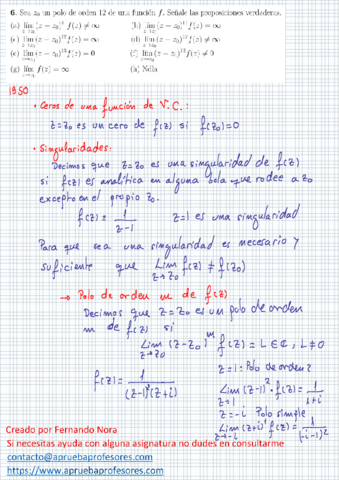 6. Sea z₀ un polo de orden 12 de una función f. Señale las proposiciones verdaderas.
(g) lim f(z) = ∞ (h) Ndla
1950
• Ceros de una función de V.C.:
z=z₀ es un cero de f(z) si f(z₀)=0
• Singularidades:
Decimos que z=z₀ es una singularidad de f(z)
si f(z) es analítica en alguna bola que rodee a z₀
excepto en el propio z₀.
f(z) = 1/(z-1) z=1 es una singularidad
Para que sea una singularidad es necesario y
suficiente que Lim z→z₀ f(z) ≠ f(z₀)
→ Polo de orden m de f(z)
Decimos que z=z₀ es un polo de orden
m de f(z) si
Lim z→z₀ (z-z₀)^m f(z) = L ∈ ℂ, L≠0
z=1: Polo de orden 2
f(z) = 1/((z-1)²(z+i))
Lim z→1 (z-1)² · f(z) = 1/(1+i)
z=-i Polo simple
Lim z→-i (z+i)¹ f(z) = 1/(-i-1)²
Creado por Fernando Nora
Si necesitas ayuda con alguna asignatura no dudes en consultarme
contacto@apruebaprofesores.com
https://www.apruebaprofesores.com